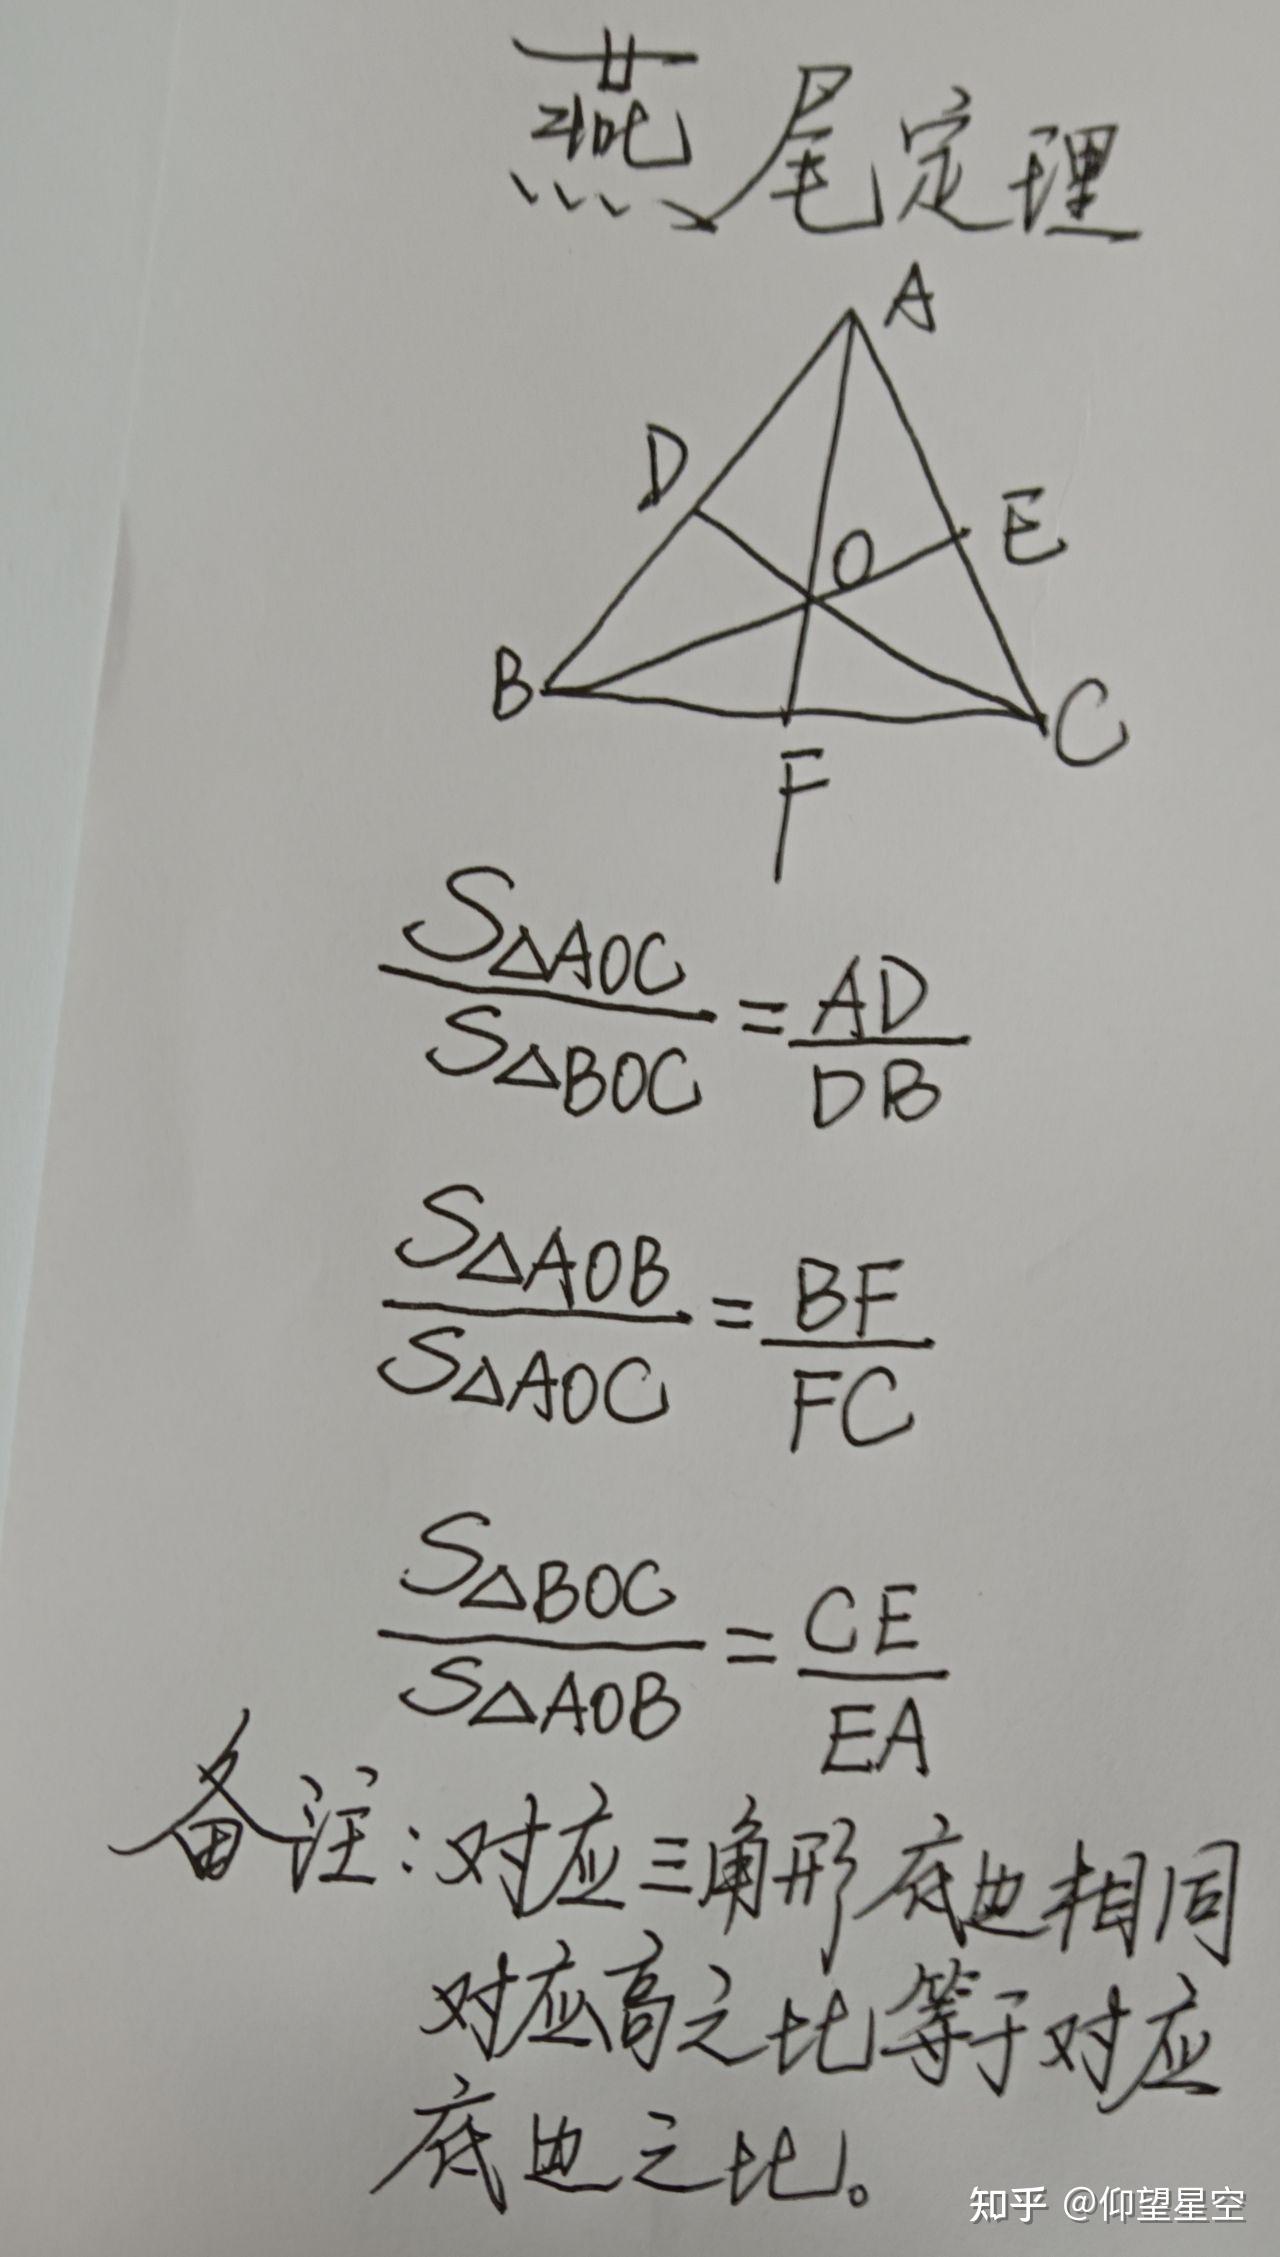 燕尾定理
A
D
E
O
B
C
F
S△AOC
S△BOC
=
AD
DB
S△AOB
S△AOC
=
BF
FC
S△BOC
S△AOB
=
CE
EA
备注：对应三角形底边相同
对应高之比等于对应
底边之比。
知乎 @仰望星空